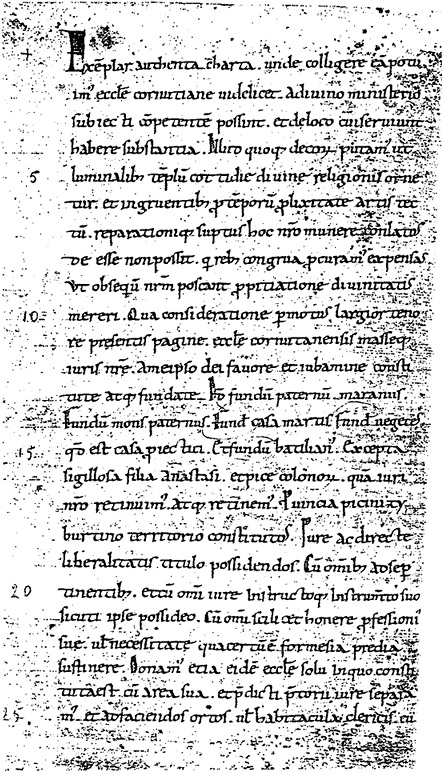 Exēplar autenta c̄harta. unde colligere cā potui
im' eccłe cornutiane uidelicet. Adiuino ministerio
subiecti cōpetentē possint. et deloco cui seruiunt
habere substantia. Niro quoq; decori putam' ut
5 luminalib; tēplū cottidie diuine religionis orne
tur. et ingruentib; p tēporū plixitate artis tec
tū. reparationiq; suptus hoc nr̄o munere conlatos
de esse nonpossit. q reb; congrua pcuram' expensas
Vt obsequū nr̄m poscant ppitiatione diuinitatis
10 mereri. Qua consideratione pmotus largior teno
re presentis pagine. eccłe cornutanensis masseq;
iuris nr̄e. Ameipso dei fauore et iubamine consti
tute atq; fundate. Id fundū paternū. maranus.
fundū mons paternus. fund casa martis fund uegetes
15 qd est casa piectici. Et fundū batilian'. Excepta
sigillosa filia anastasi. et pice colonoꝝ. quā iuri
nr̄o retinuim'. Atq; retinem'. Puincia picini ty
burtino territorio constitutos. Iure ac directe
liberalitatis titulo possidendos. Cū omīb; adsep
20 tinentib;. et cū omī iure instructoq; instrumto suo
sicuti ipse possideo. Cū omī scilicet honere pfessioni
sue. ul necessitate qua certūē formesia predia
sustinere. Donam' etiā eidē eccłe solu inquo consti
tuta est. cū area sua. et pdicti ptorū iure separa
25 m'. et adfaciendos ortos. ul habitacula clericis. cū